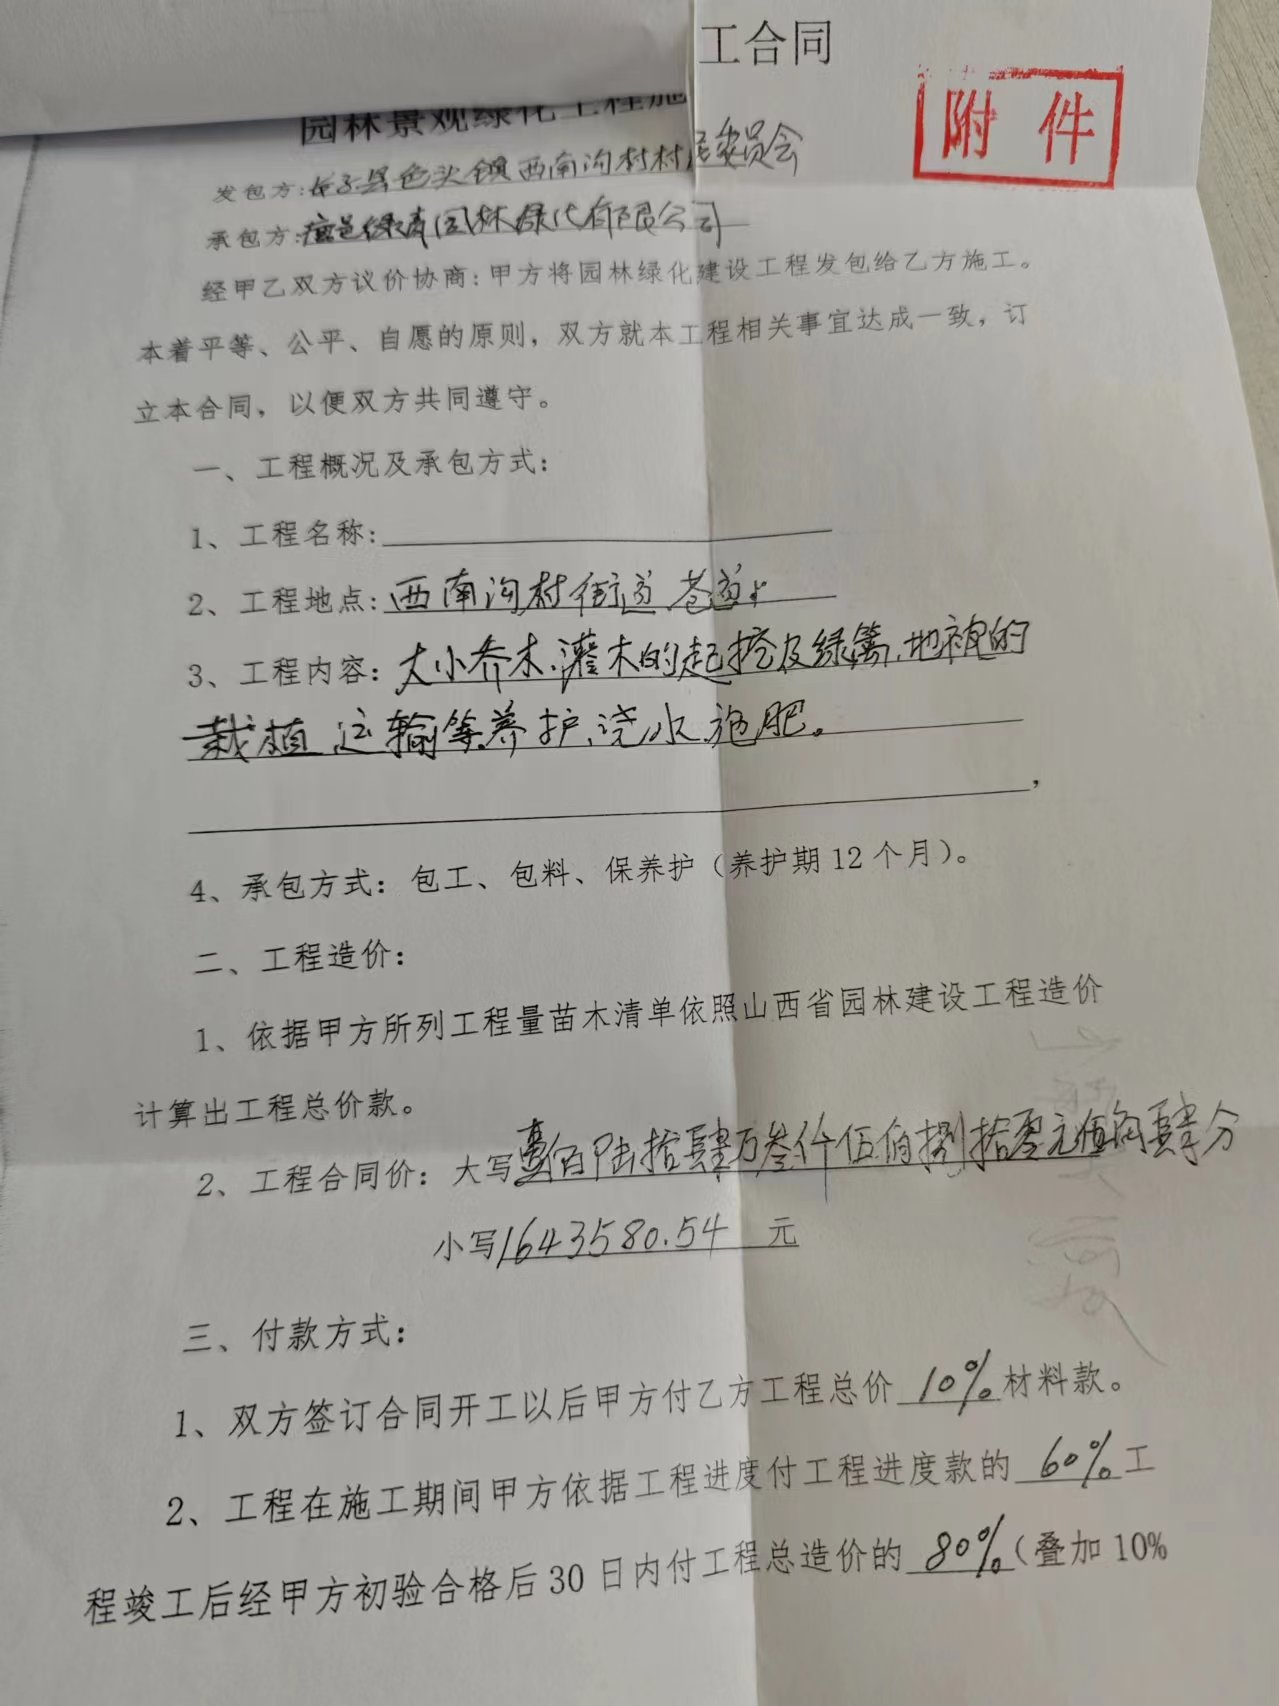 园林景观绿化工程施工合同
附 件
发包方:长子县色头镇西南沟村村民委员会
承包方:壶邑绿青园林绿化有限公司
经甲乙双方议价协商:甲方将园林绿化建设工程发包给乙方施工。
本着平等、公平、自愿的原则，双方就本工程相关事宜达成一致，订
立本合同，以便双方共同遵守。
一、工程概况及承包方式：
1、工程名称:
2、工程地点:西南沟村街道巷道
3、工程内容：大小乔木、灌木的起挖及绿篱、地被的
栽植运输等养护、浇水施肥。
，
4、承包方式：包工、包料、保养护（养护期12个月）。
二、工程造价：
1、依据甲方所列工程量苗木清单依照山西省园林建设工程造价
计算出工程总价款。
2、工程合同价：大写壹佰陆拾肆万叁仟伍佰捌拾零元伍角肆分
小写1643580.54 元
三、付款方式：
1、双方签订合同开工以后甲方付乙方工程总价 10% 材料款。
2、工程在施工期间甲方依据工程进度付工程进度款的 60% 工
程竣工后经甲方初验合格后30日内付工程总造价的 80%（叠加10%